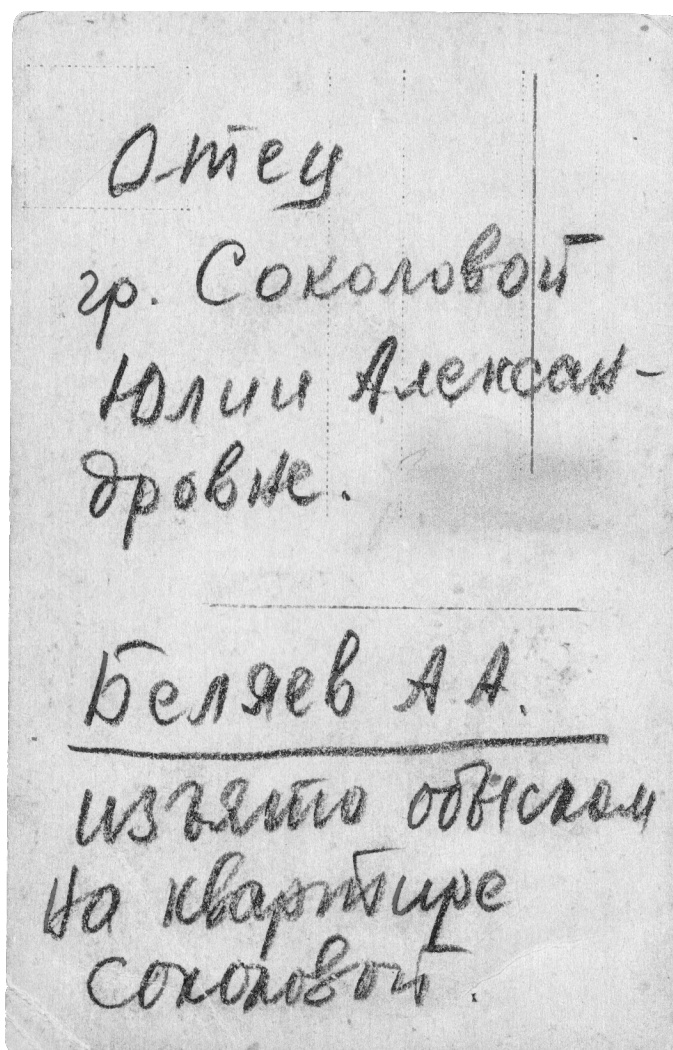 Отец
гр. Соколовой
Юлии Алексан-
дровне.
Беляев А А.
изъято обыском
на квартире
Соколовой.